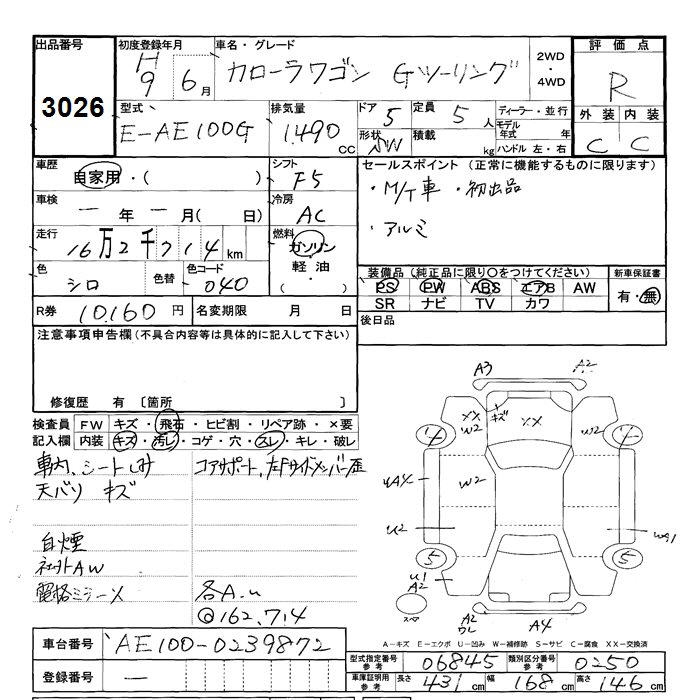 出品番号
3026
初度登録年月
H 9 6月
車名・グレード
カローラワゴン Gツーリング
2WD
・
4WD
評価点
R
型式
E-AE100G
排気量
1490 CC
ドア
5
定員
5人
形状
積載
kg
ディーラー・並行
モデル年式 年
ハンドル 左・右
外装 内装
C C
車歴
自家用・( )
シフト
F5
セールスポイント (正常に機能するものに限ります)
・M/T車 ・初出品
・アルミ
車検
一 年 一 月( 日)
冷房
AC
走行
16万2千714km
燃料
ガソリン
・
軽油
・
( )
色
シロ
色替
色コード
040
装備品(純正品に限り○をつけてください)
PS PW ABS エアB AW
SR ナビ TV カワ
新車保証書
有・無
R券 10,160円
名変期限 月 日
後日品
注意事項申告欄(不具合内容等は具体的に記入して下さい)
修復歴 有 〔箇所 〕
検査員
記入欄
FW キズ・飛石・ヒビ割・リペア跡・×要
内装 キズ・汚レ・コゲ・穴・スレ・キレ・破レ
車内、シートしみ
天バリ キズ
コアサポート、左Fサイドメンバー歪
社外AW
電格ミラーX
各A.u
◎162,714
A3
A2
XX
W2
キズ
XX
uA4
W2
U2
5
5
U1
A2
スペア
A2
A4
A-キズ E-エクボ U-凹み W-補修跡 S-サビ C-腐食 XX-交換済
車台番号
AE100-0239872
登録番号
一
型式指定番号
参考
06845
類別区分番号
参考
0250
車庫証明用
参考
長さ 431cm 幅 168cm 高さ 146cm